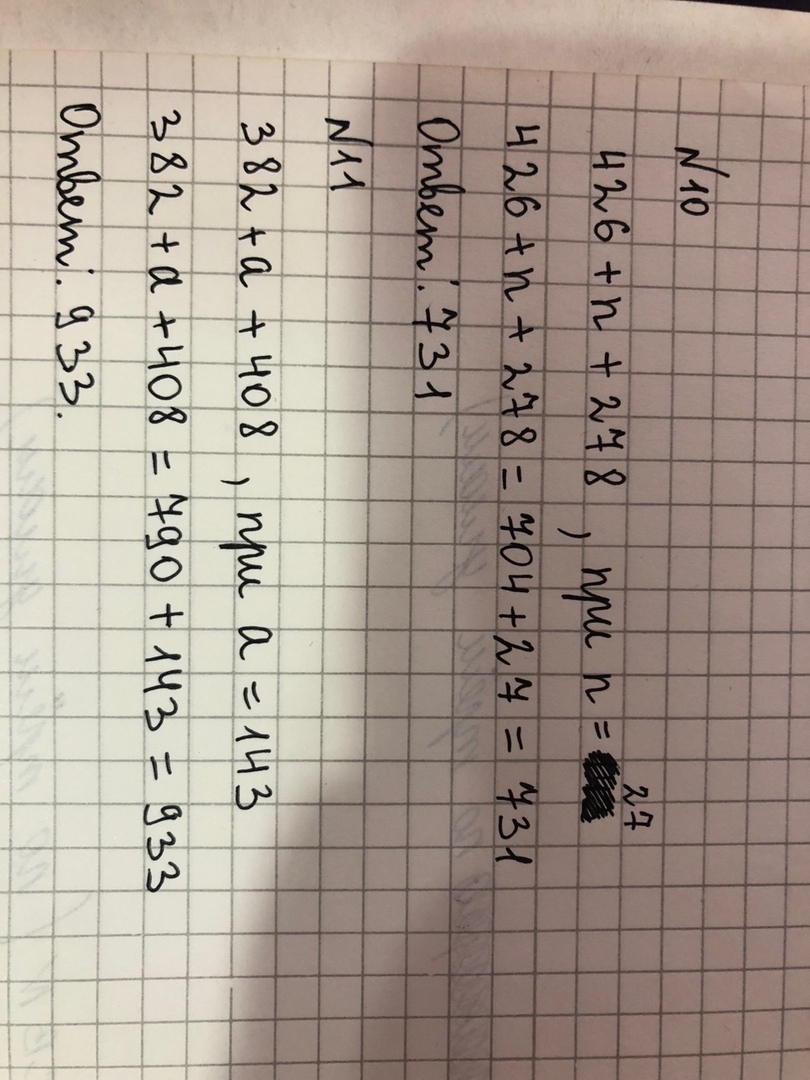 N10
426+n+278, при n=27
426+n+278=704+27=731
Ответ: 731
N11
382+a+408, при a=143
382+a+408=790+143=933
Ответ: 933.